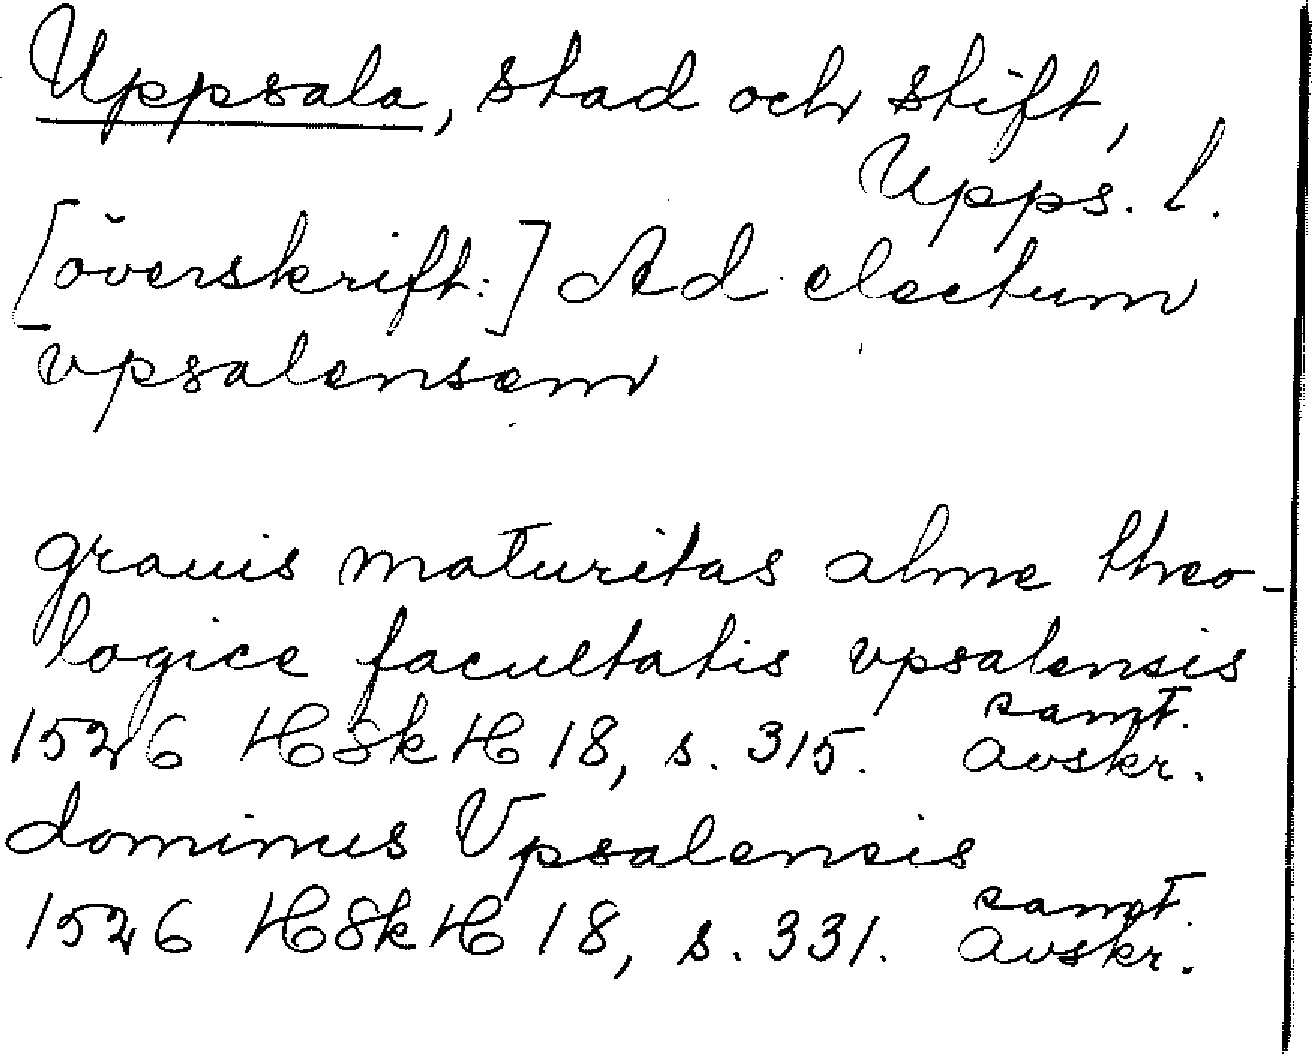 Uppsala, stad och stift,
Upps. l.
[överskrift:] Ad electum
vpsalensem
grauis maturitas alme theo-
logice facultatis vpsalensis
1526 HSkH 18, s. 315. samt. avskr.
dominus Vpsalensis
1526 HSkH 18, s. 331. samt. avskr.